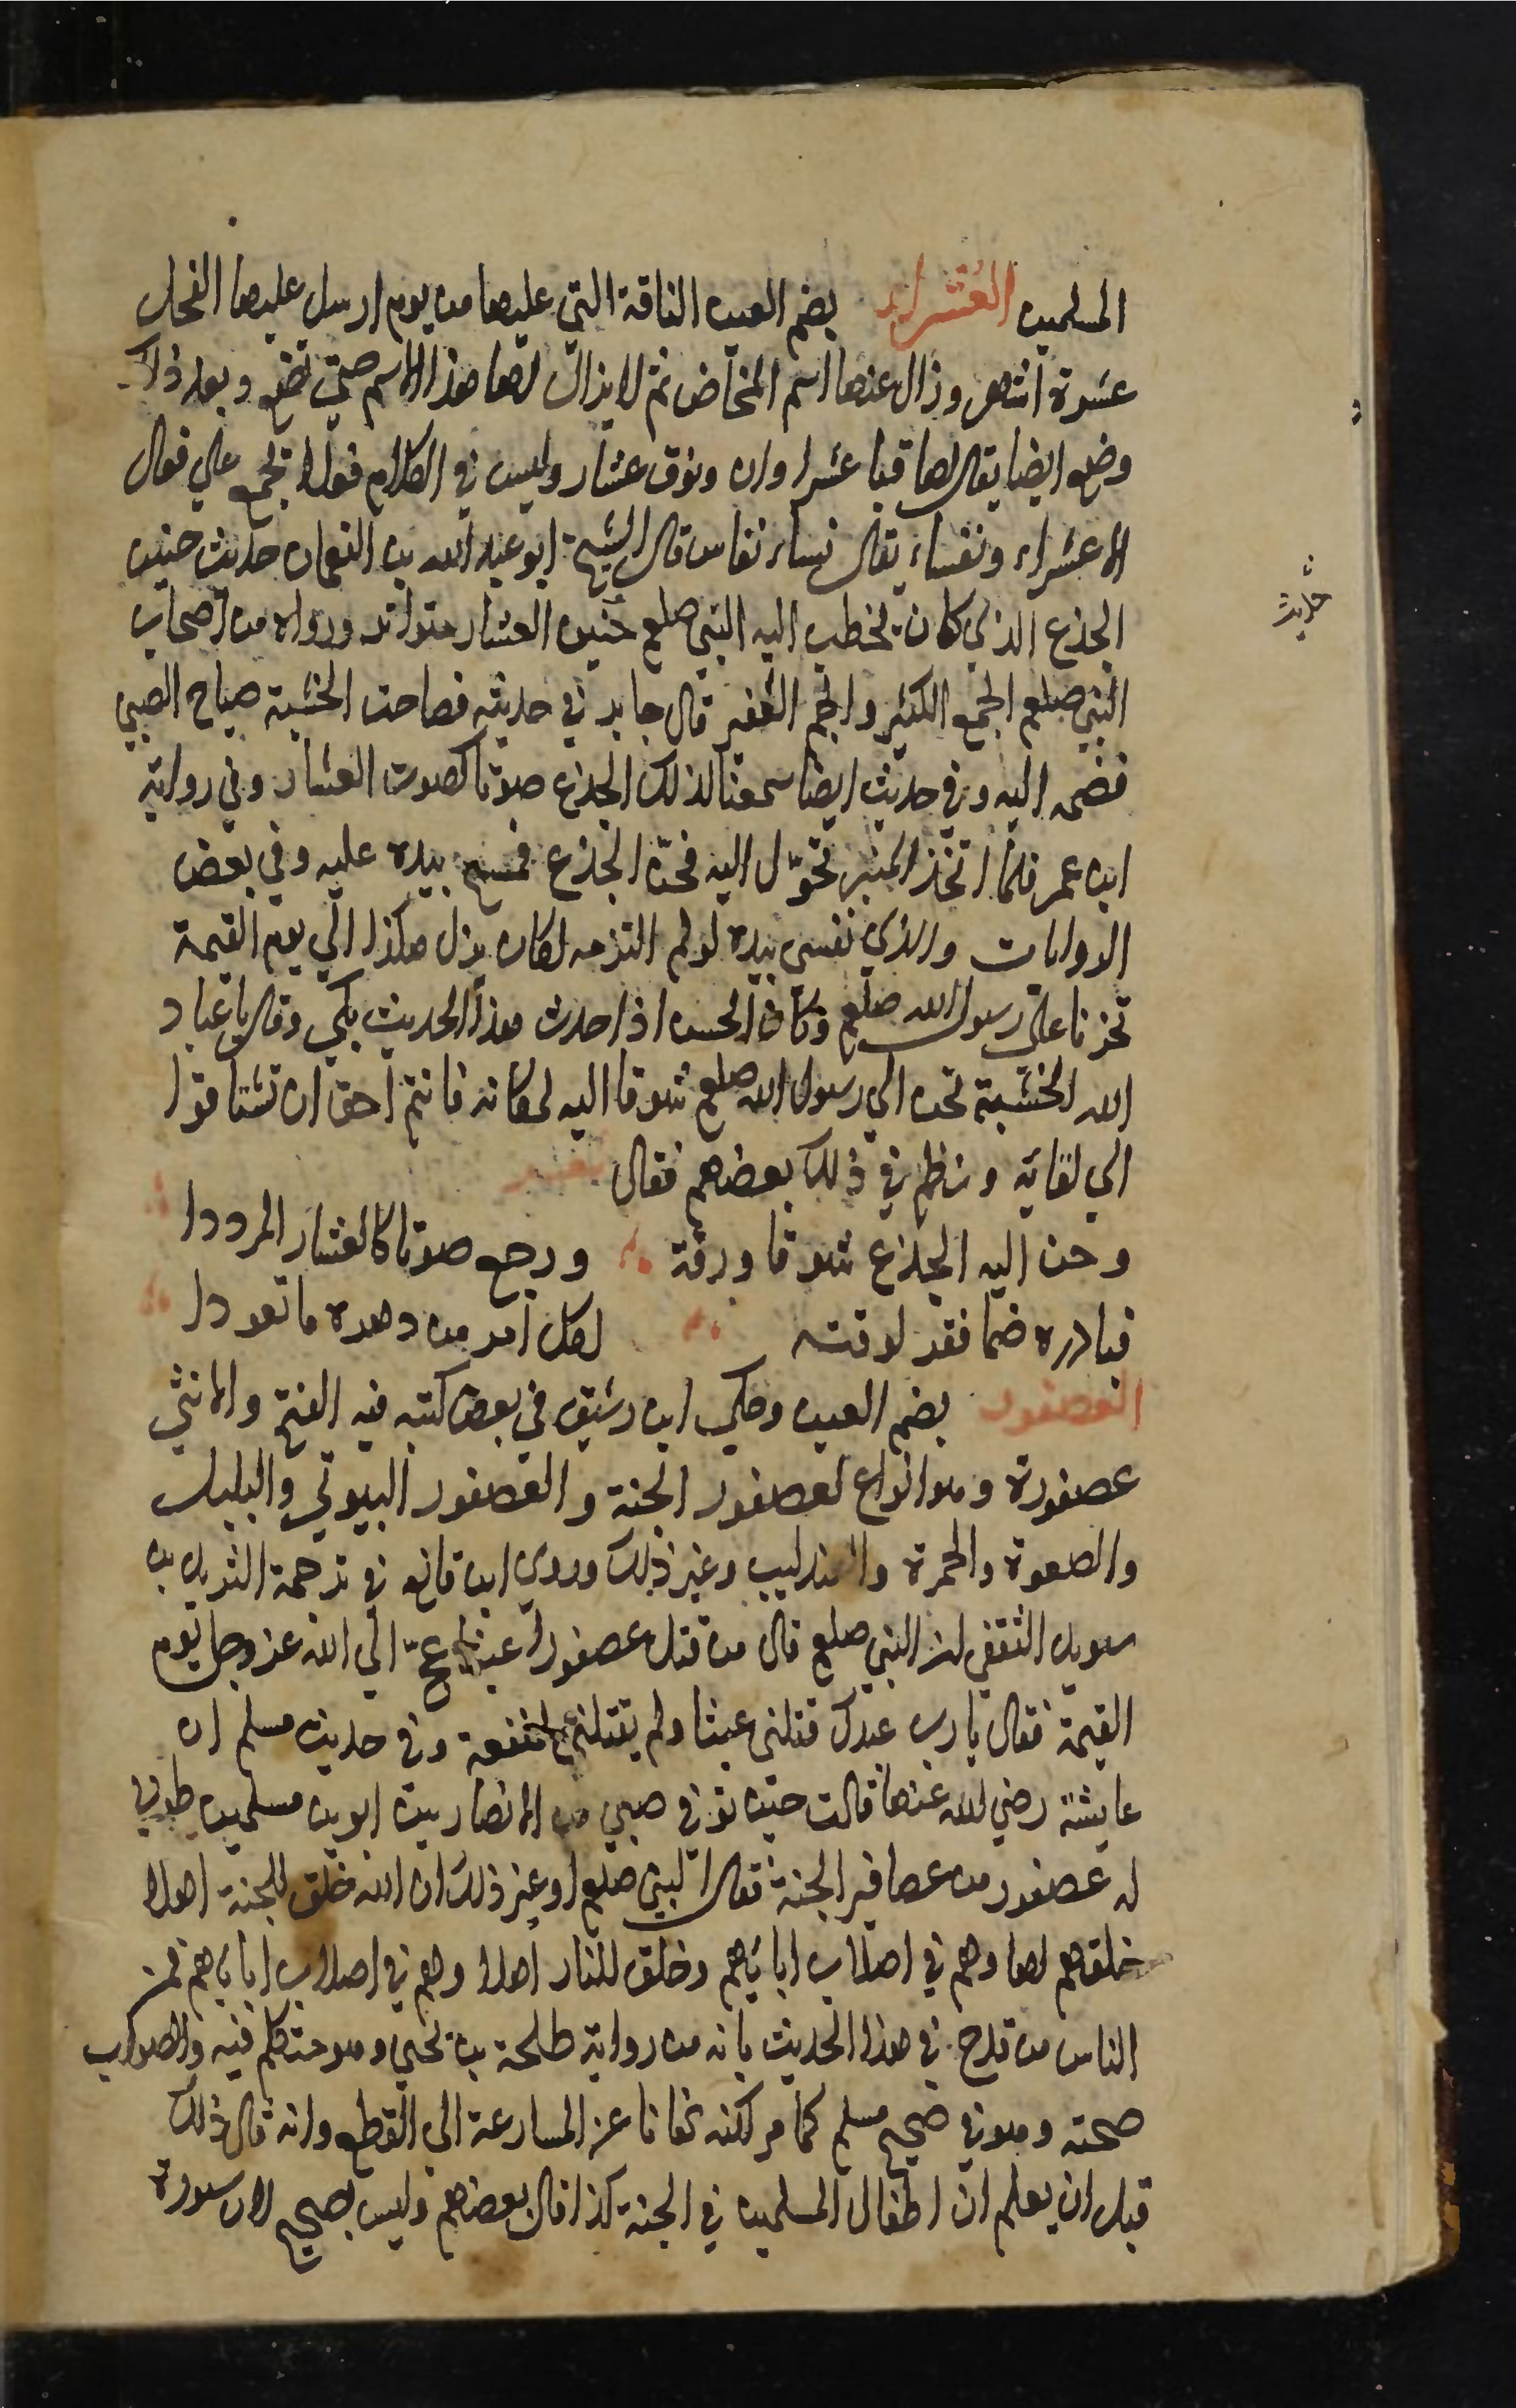 المسلمين العشراء بضم العين الناقة التي عليها من يوم ارسل عليها الفحل
عشرة اشهر وزال عنها اسم المخاض ثم لا يزال لها هذا الاسم حتي تضع وبعد ذلك
وضع ايضا يقال لها عشراوان ونوق عشار وليس في الكلام فعلا تجمع علي فعال
الا عشراء ونفساء يقال نساء نفاس قال الشيخ ابو عبد الله بن النعمان حديث حنين
حديث
الجذع الذي كان يخطب اليه النبي صلعم حنين العشار متواتر ورواه من اصحاب
النبي صلعم الجمع الكثير والجم الغفير قال جابر في حديثه فصاحت الخشبة صياح الصبي
فضمه اليه وفي حديث ايضا سمعنا لذلك الجذع صوتا كصوت العشار وفي رواية
ابن عمر فلما اتخذ المنبر تحوّل اليه فحن الجذع فمسح بيده عليه وفي بعض
الروايات والذي نفسي بيده لو لم التزمه لكان يزل هكذا الي يوم القيمة
تحزنا علي رسول الله صلعم وكان الحسن اذا حدث هذا الحديث بكي وقال يا عباد
الله الخشبة تحن الي رسول الله صلعم شوقا اليه لمكانه فانتم احق ان تشتاقوا
الي لقايه ونظم في ذلك بعضهم فقال
وحن اليه الجذع شوقا ورقة ورجع صوتا كالعشار المرددا
فبادره ضما فقر لوقته لكل امر من دهره ما تعودا
العصفور بضم العين وحكي ابن رشيق في بعض كتبه فيه الفتح والانثي
عصفورة وهو انواع لعصفور الجنة والعصفور البيوتي والبلبل
والصعوة والحمرة والعندليب وغير ذلك وروي ابن قانع في ترجمة الشريد بن
سويد الثقفي ان النبي صلعم قال من قتل عصفورا عبثا عجّ الي الله عز وجل يوم
القيمة فقال يا رب عبدك قتلني عبثا ولم يقتلني لمنفعة وفي حديث مسلم ان
عايشة رضي الله عنها قالت حين توفي صبي من الانصار بين ابوين مسلمين طوبي
له عصفور من عصافير الجنة فقال النبي صلعم او غير ذلك ان الله خلق للجنة اهلا
خلقهم لها وهم في اصلاب ابايهم وخلق للنار اهلا وهم في اصلاب ابايهم فمن
الناس من قدح في هذا الحديث بانه من رواية طلحة بن يحيي وهو متكلم فيه والصواب
صحته وهو في صحيح مسلم كما مر لكنه نهانا عن المسارعة الي القطع وانه قال ذلك
قبل ان يعلم ان اطفال المسلمين في الجنة كذا قال بعضهم وليس بصحيح لان سورة